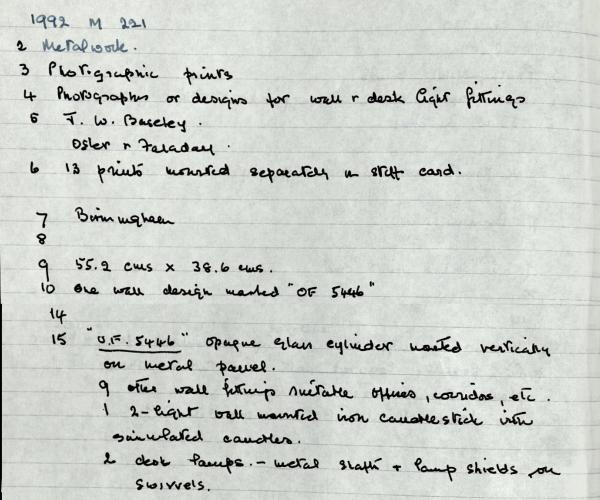 1992 M 221
2 Metalwork.
3 Photographic prints
4 Photographs or designs for wall + desk light fittings
5 T. W. Baseley.
Osler + Faraday.
6 13 prints mounted separately on stiff card.
7 Birmingham
8
9 55.2 cms x 38.6 cms.
10 One wall design marked "OF 5446"
14
15 "O.F. 5446" opaque glass cylinder mounted vertically
on metal panel.
9 other wall fittings suitable offices, corridors, etc.
1 2-light wall mounted iron candlestick with
simulated candles.
2 desk lamps. - metal shafts + lamp shields on
swivels.